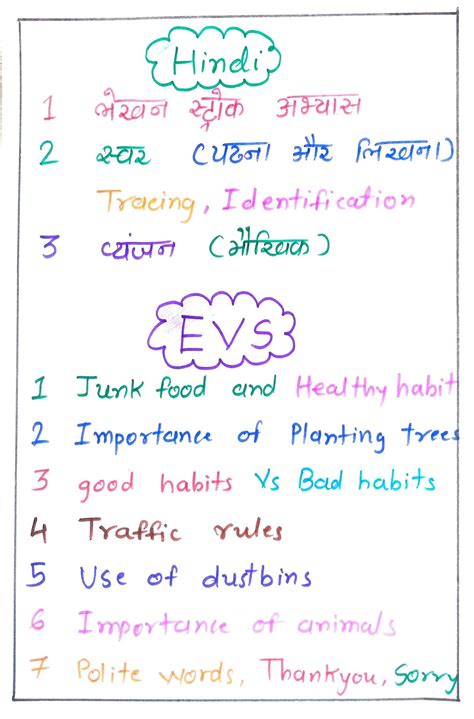 Hindi
1 लेखन स्ट्रोक अभ्यास
2 स्वर (पढना और लिखना)
Tracing, Identification
3 व्यंजन (मौखिक)
EVS
1 Junk food and Healthy habit
2 Importance of Planting trees
3 good habits Vs Bad habits
4 Traffic rules
5 Use of dustbins
6 Importance of animals
7 Polite words, Thankyou, Sorry